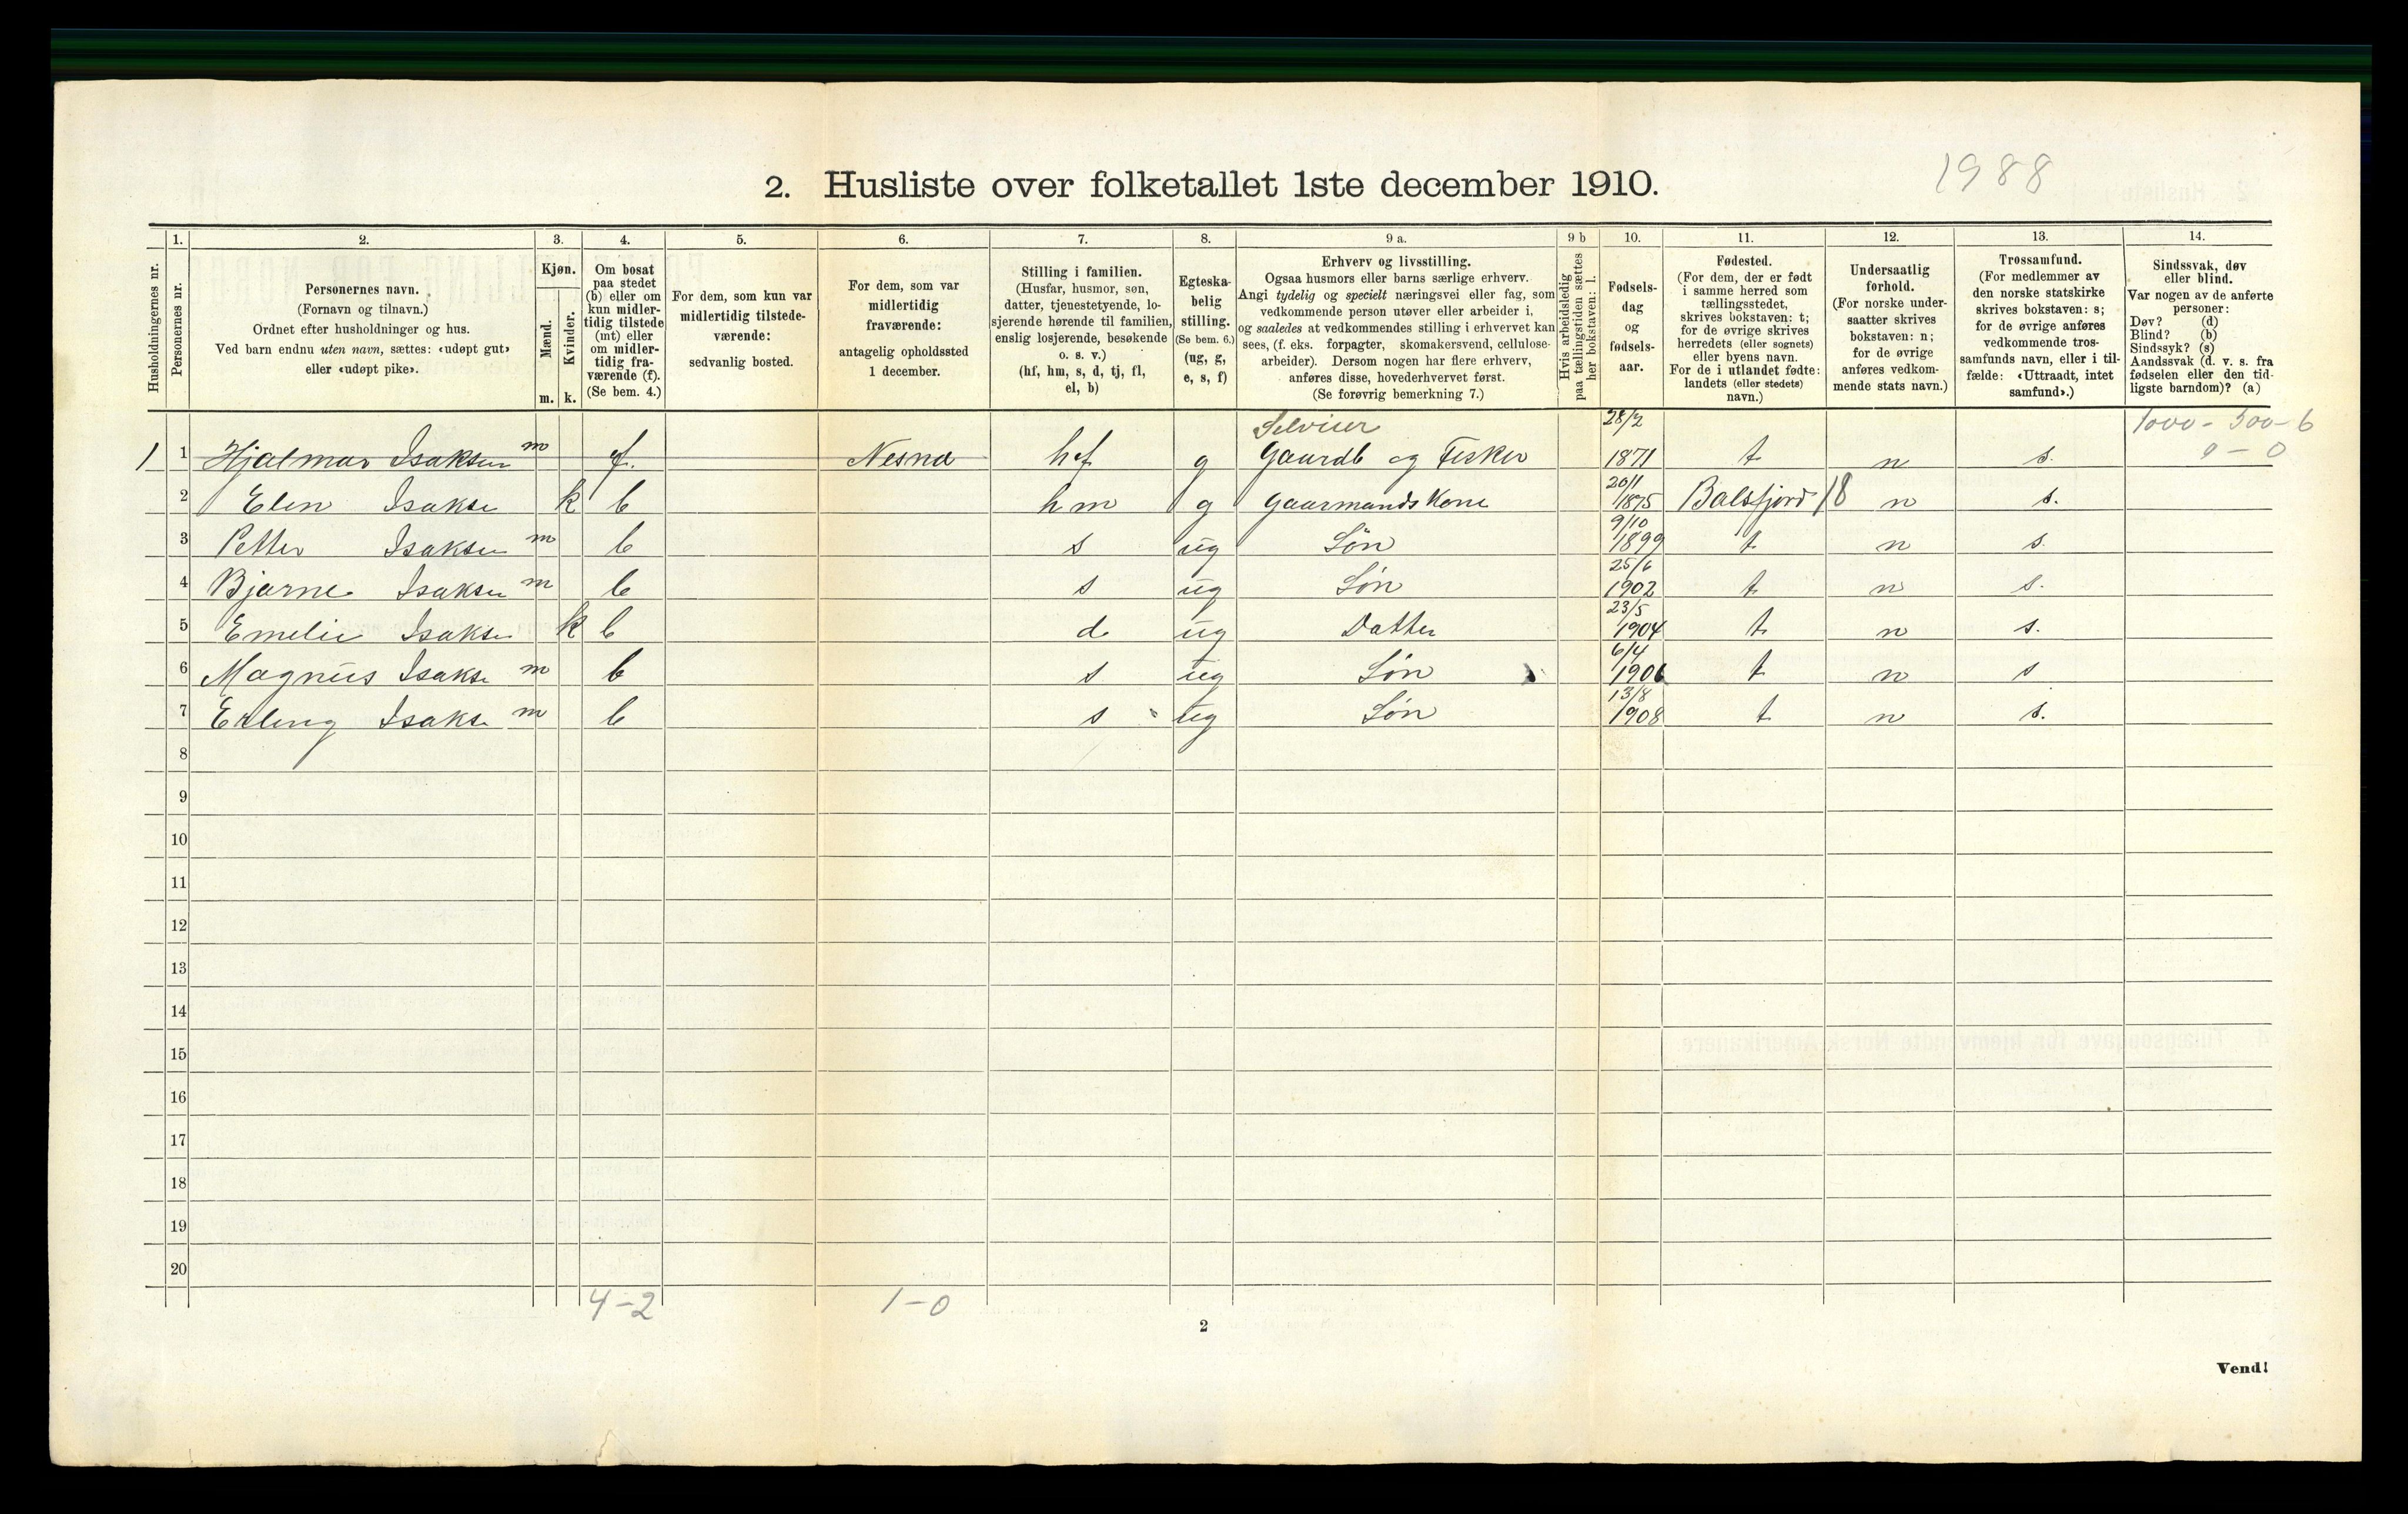 1988
2. Husliste over folketallet 1ste december 1910.
Husholdningernes nr.
1. 2. 3. 4. 5. 6. 7. 8. 9 a. 9 b 10. 11. 12. 13. 14.
Personernes nr.
Personernes navn.
(Fornavn og tilnavn.)
Ordnet efter husholdninger og hus.
Ved barn endnu uten navn, sættes: «udøpt gut»
eller «udøpt pike».
Kjøn.
Mænd.
Kvinder.
m. k.
Om bosat
paa stedet
(b) eller om
kun midler-
tidig tilstede
(mt) eller
om midler-
tidig fra-
værende (f).
(Se bem. 4.)
For dem, som kun var
midlertidig tilstede-
værende:
sedvanlig bosted.
For dem, som var
midlertidig
fraværende:
antagelig opholdssted
1 december.
Stilling i familien.
(Husfar, husmor, søn,
datter, tjenestetyende, lo-
sjerende hørende til familien,
enslig losjerende, besøkende
o. s. v.)
(hf, hm, s, d, tj, fl,
el, b)
Egteska-
belig
stilling.
(Se bem. 6.)
(ug, g,
e, s, f)
Erhverv og livsstilling.
Ogsaa husmors eller barns særlige erhverv.
Angi tydelig og specielt næringsvei eller fag, som
vedkommende person utøver eller arbeider i,
og saaledes at vedkommendes stilling i erhvervet kan
sees, (f. eks. forpagter, skomakersvend, cellulose-
arbeider). Dersom nogen har flere erhverv,
anføres disse, hovederhvervet først.
(Se forøvrig bemerkning 7.)
Hvis arbeidsledig
paa tællingstiden sættes
her bokstaven: l.
Fødsels-
dag
og
fødsels-
aar.
Fødested.
(For dem, der er født
i samme herred som
tællingsstedet,
skrives bokstaven: t;
for de øvrige skrives
herredets (eller sognets)
eller byens navn.
For de i utlandet fødte:
landets (eller stedets)
navn.)
Undersaatlig
forhold.
(For norske under-
saatter skrives
bokstaven: n;
for de øvrige
anføres vedkom-
mende stats navn.)
Trossamfund.
(For medlemmer av
den norske statskirke
skrives bokstaven: s;
for de øvrige anføres
vedkommende tros-
samfunds navn, eller i til-
fælde: «Uttraadt, intet
samfund».)
Sindssvak, døv
eller blind.
Var nogen av de anførte
personer:
Døv? (d)
Blind? (b)
Sindssyk? (s)
Aandssvak (d. v. s. fra
fødselen eller den tid-
ligste barndom)? (a)
Selveier 28/2 1000 - 300 - 6
1 1 Hjalmar Isaksen m f. Nesna hf g Gaardb og Fisker 1871 t n s. 9 - 0
2 Elen Isakse k b hm g Gaarmands Kone 20/1 1875 Balsfjord 18 n s.
3 Petter Isaksen m b s ug Søn 9/10 1899 t n s.
4 Bjarne Isaksen m b s ug Søn 25/6 1902 t n s.
5 Emelie Isakse k b d ug Datter 23/5 1904 t n s.
6 Magnus Isakse m b s ug Søn 6/4 1906 t n s
7 Erling Isakse m b s ug Søn 13/8 1908 t n s.
8
9
10
11
12
13
14
15
16
17
18
19
20
4-2 1-0
2
Vend!